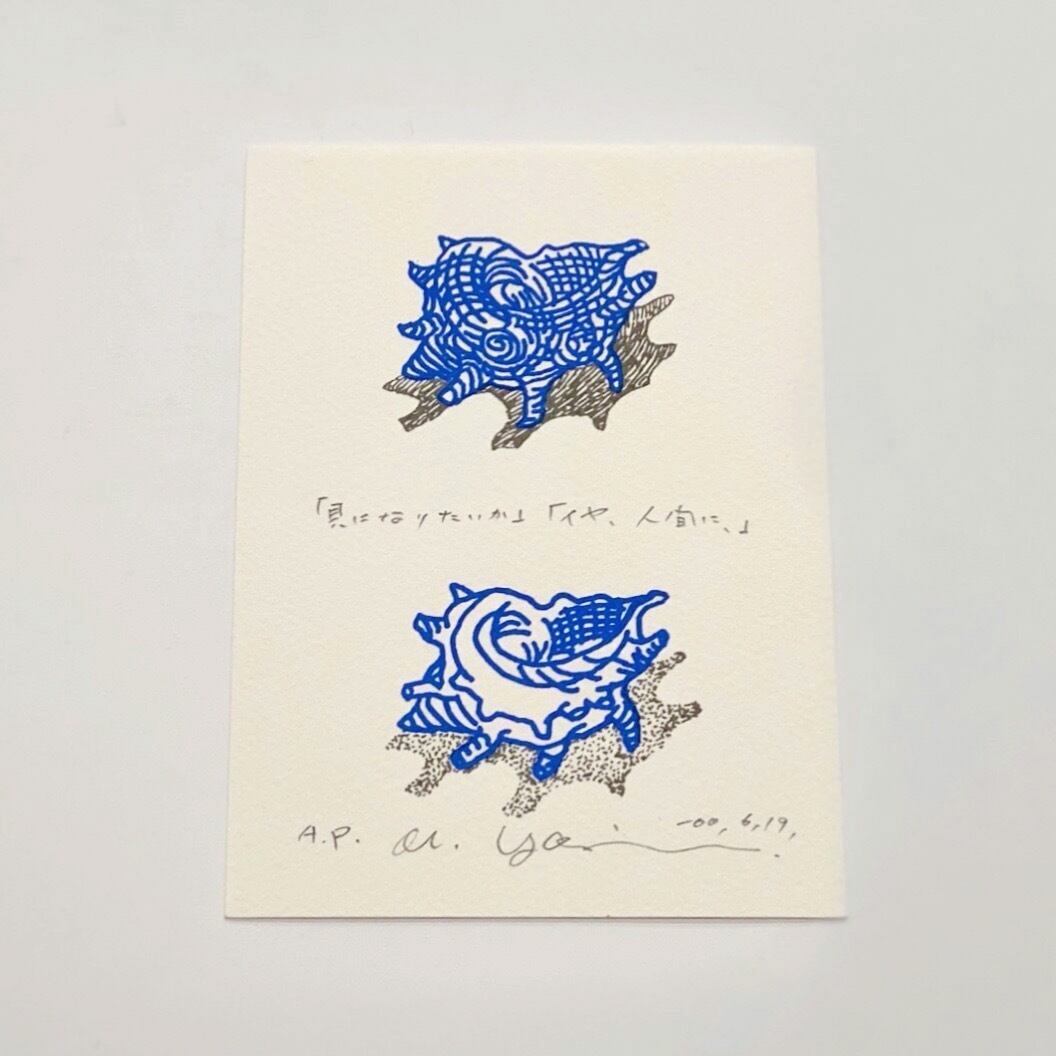 「貝になりたいか」「イヤ、人間に、」
A.P. -00, 6, 19,